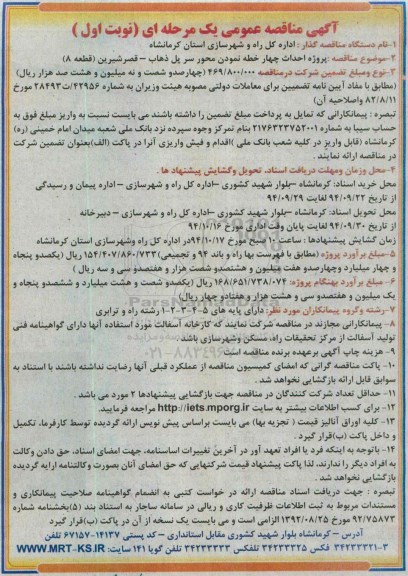 آگهی مناقصه عمومی یک مرحله ای (نوبت اول)
۱-نام دستگاه مناقصه گذار: اداره کل راه و شهرسازی استان کرمانشاه
۲-موضوع مناقصه :پروژه احداث چهار خطه نمودن محور سر پل ذهاب – قصرشیرین (قطعه ۸)
۳-نوع ومبلغ تضمین شرکت درمناقصه ۴۶۹/۸۰۰/۰۰۰ (چهارصدو شصت و نه میلیون و هشت صد هزار ریال)
(مطابق با مفاد آیین نامه تضمینی برای معاملات دولتی مصوبه هیئت وزیران به شماره ۴۲۹۵۶/ت۲۸۴۹۳ مورخ
۸۲/۸/۱۱ واصلاحیه آن)
تبصره : پیمانکارانی که تمایل به پرداخت مبلغ تضمین را داشته باشند می بایست نسبت به واریز مبلغ فوق به
حساب سیبا به شماره ۲۱۷۶۴۲۳۷۵۲۰۰۱ بنام تمرکز وجوه سپرده نزد بانک ملی شعبه میدان امام خمینی (ره)
کرمانشاه (قابل واریز در کلیه شعب بانک ملی )اقدام و فیش واریزی آنرا در پاکت (الف)بعنوان تضمین شرکت
در مناقصه ارائه نمایند .
۴-محل وزمان ومهلت دریافت اسناد، تحویل وگشایش پیشنهاد ها .
محل خرید اسناد: کرمانشاه –بلوار شهید کشوری –اداره کل راه و شهرسازی – اداره پیمان و رسیدگی
از تاریخ ۹۴/۰۹/۲۲ لغایت ۹۴/۰۹/۲۹
محل تحویل اسناد: کرمانشاه –بلوار شهید کشوری –اداره کل راه و شهرسازی – دبیرخانه
از تاریخ ۹۴/۰۹/۳۰ لغایت پایان وقت اداری مورخ ۹۴/۱۰/۱۶
زمان گشایش پیشنهادها : ساعت ۱۰صبح مورخ ۹۴/۱۰/۱۷در اداره کل راه وشهرسازی استان کرمانشاه
۵-مبلغ برآورد پروژه (مطابق با فهرست بها راه و باند ۹۴ و تجمیعی) ۱۵۴/۴۰۷/۸۶۰/۷۳۳ ریال (یکصدو پنجاه
و چهار میلیارد وچهارصدو هفت میلیون و هشتصدو شصت هزار و هفتصدو سی و سه ریال )
۶-مبلغ برآورد بهنگام پروژه: ۱۶۸/۶۵۱/۷۳۸/۰۷۴ ریال (یکصدو شصت و هشت میلیارد و ششصدو پنجاه و
یک میلیون و هفتصدو سی و هشت هزار و هفتادو چهار ریال)
۷-رشته وگروه پیمانکاران مورد نظر: دارای پایه های ۵-۴-۳-۲-۱ رشته راه و ترابری
۸-پیمانکارانی مجازند در مناقصه شرکت نمایند که کارخانه آسفالت مورد استفاده آنها دارای گواهینامه فنی
تولید آسفالت از مرکز تحقیقات راه، مسکن وشهرسازی باشد
۹- هزینه چاپ آگهی برعهده برنده مناقصه است .
۱۰- پاکت مناقصه گرانی که امضای کمیسیون مناقصه از عملکرد قبلی آنها رضایت نداشته باشند با استناد به
سوابق قابل ارائه بازگشایی نخواهد شد .
۱۱- حداقل تعداد شرکت کنندگان در مناقصه جهت بازگشایی پیشنهادها ۲ مورد می باشد .
۱۲- برای کسب اطلاعات بیشتر به سایت http://iets.mporg.ir مراجعه فرمایید.
۱۳- کلیه اوراق آنالیز قیمت ( تجزیه بها) می بایست براساس پیش نویس ارائه گردیده توسط کارفرما، تکمیل
و داخل پاکت (ب)قرار گیرد .
۱۴- باتوجه به اینکه فرد یا افراد تعهد آور در آخرین تغییرات اساسنامه، جهت امضای اسناد، حق دادن وکالت
به افراد دیگر را ندارند، لذا پاکت پیشنهاد قیمت شرکتهایی که حق امضای آنان بصورت وکالتنامه ارایه گردیده
بازگشایی نخواهد شد .
تبصره : جهت دریافت اسناد مناقصه ارائه در خواست کتبی به انضمام گواهینامه صلاحیت پیمانکاری و
مستندات مربوط به ثبت اطلاعات ظرفیت کاری و ریالی در سامانه ساجار به استناد بند (۵)بخشنامه شماره
۹۲/۷۵۸۷۳ مورخ ۱۳۹۲/۰۸/۲۵ الزامی است و می بایست یک نسخه از آن در پاکت (ب)قرار گیرد .
آدرس – کرمانشاه بلوار شهید کشوری مقابل استانداری – کد پستی ۱۴۱۳۷-۶۷۱۵۷ تلفن
۳-۳۴۲۳۳۲۲۱ فکس ۳۴۲۳۳۲۲۵ تلفن گویا ۱۴۱ سایت: WWW.MRT-KS.IR